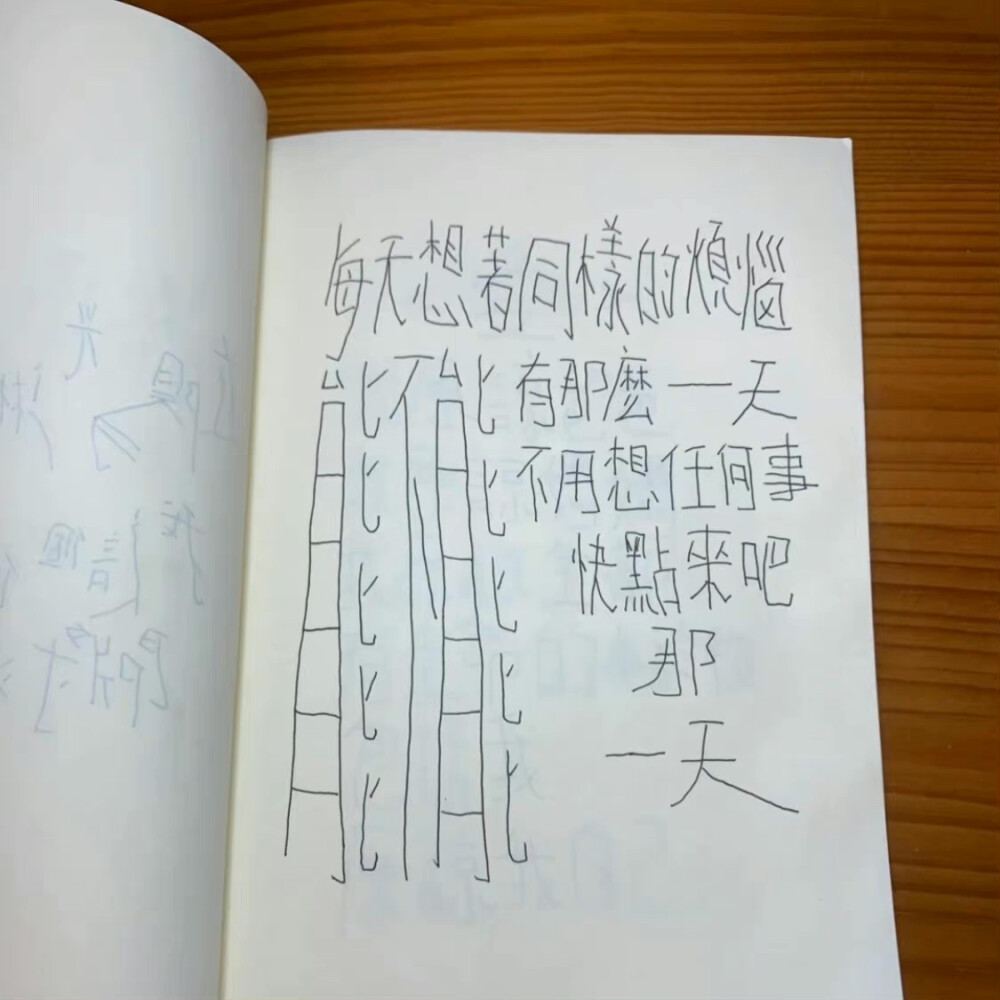 每天想著同樣的煩惱
能不能有那麼一天
不用想任何事
快點來吧
那
一天